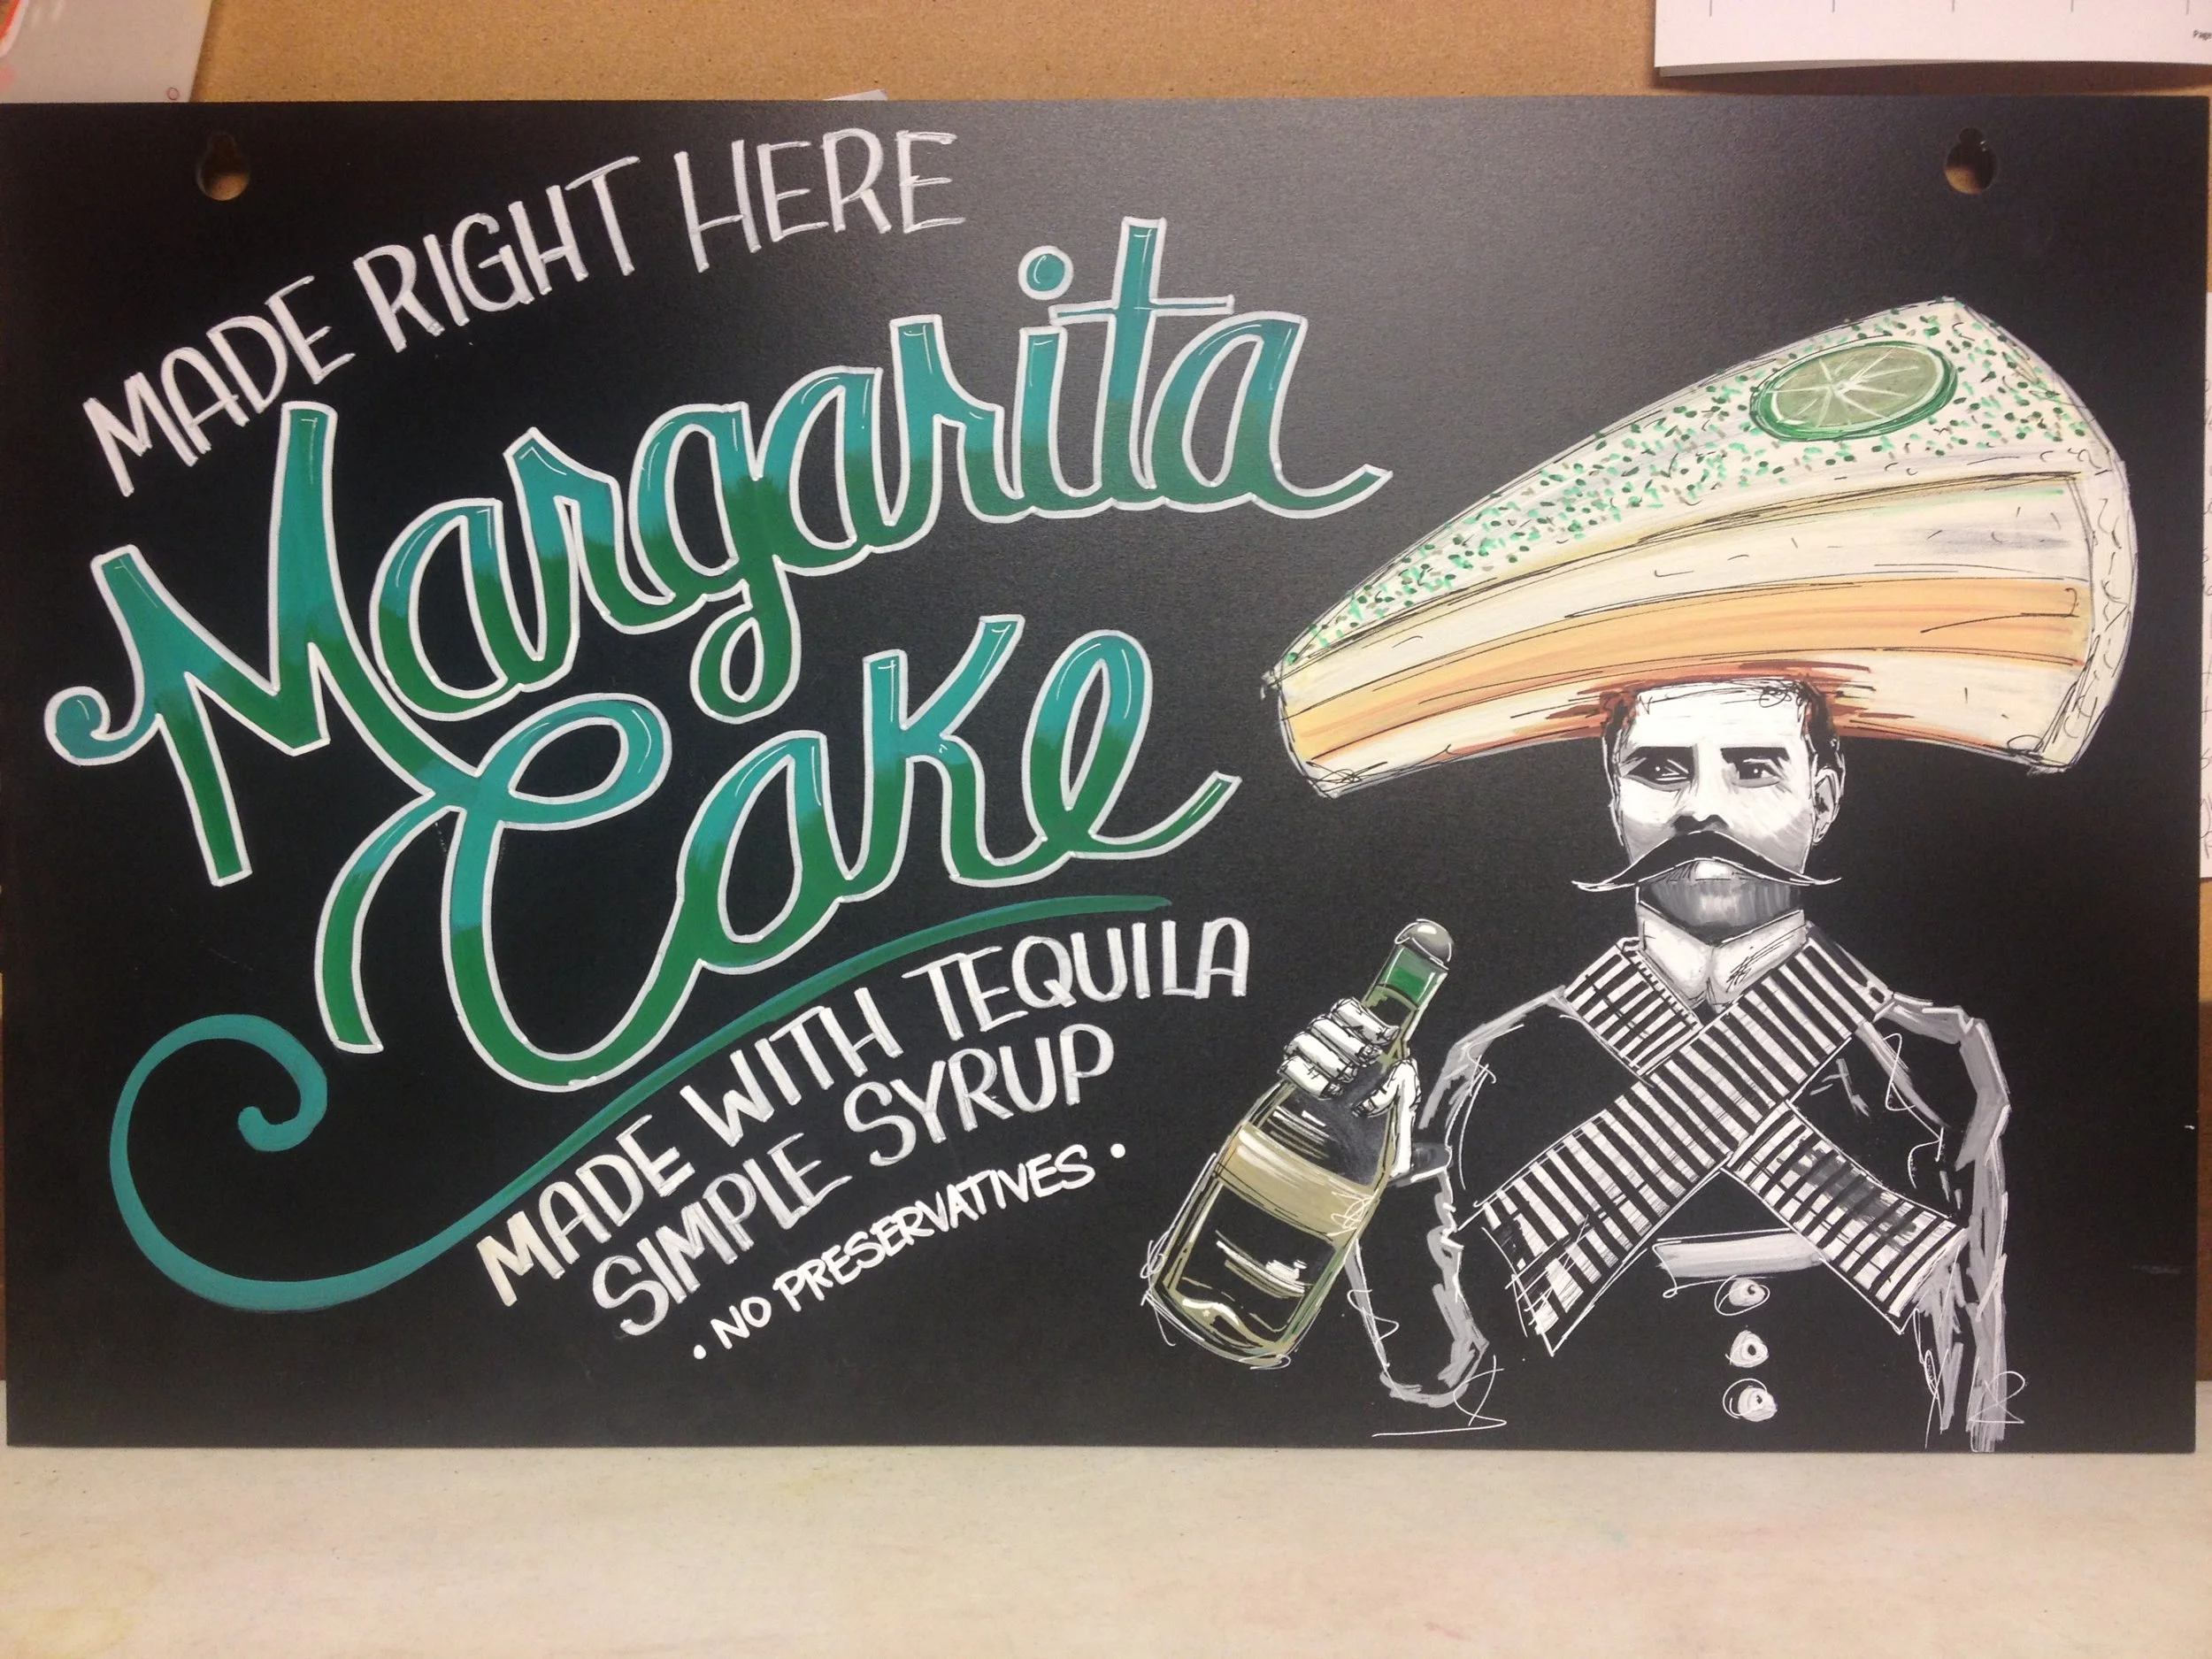 MADE RIGHT HERE
Margarita
Cake
MADE WITH TEQUILA
SIMPLE SYRUP
• NO PRESERVATIVES •
Page